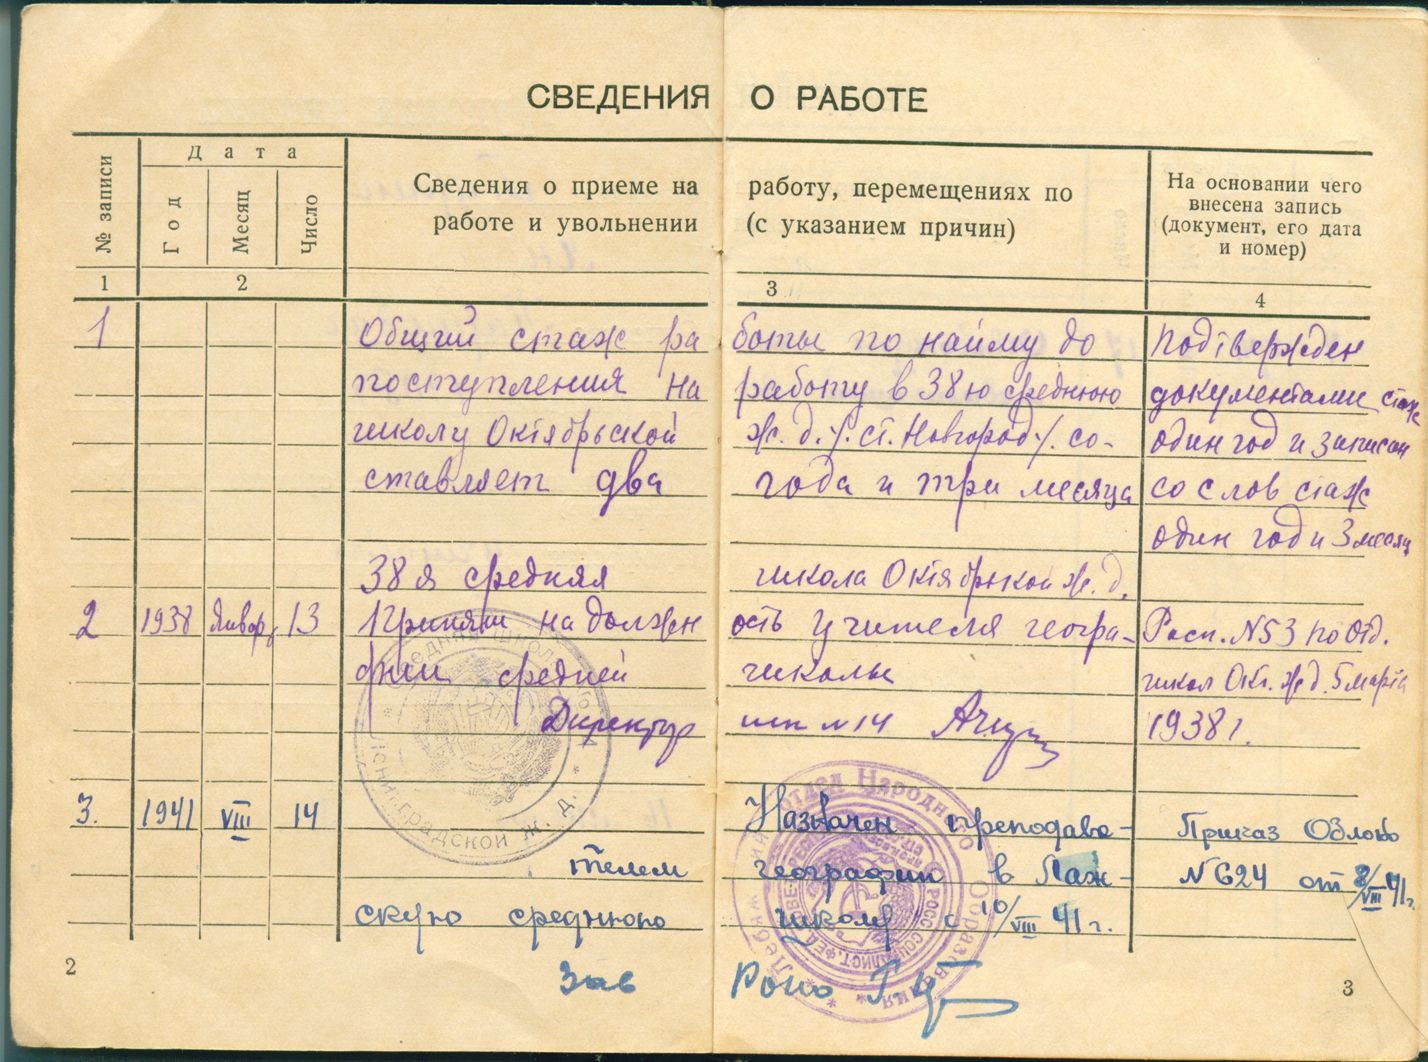 СВЕДЕНИЯ О РАБОТЕ
№ записи
Дата
Год
Месяц
Число
Сведения о приеме на работу, перемещениях по
работе и увольнении (с указанием причин)
На основании чего
внесена запись
(документ, его дата
и номер)
1 2 3 4
1 Общий стаж ра боты по найму до Подтвержден
поступления на работу в 38ю среднюю документами стаж
школу Октябрьской ж.д. ст. Новгород со- один год и записан
ставляет два года и три месяца со слов стаж
один год и 3 месяц
38я средняя школа Октябрьской ж.д.
2 1938 Январь 13 Принят на должн ость учителя геогра- Расп. N53 по Отд.
фии средней школы школ Окт. жд. 5 марта
Директор шк N14 1938 г.
3. 1941 VIII 14 Назначен преподава- Приказ Облоно
телем географии в Лаж- N624 от 8/VIII 41 г.
скую среднюю школу с 10/VIII 41 г.
Зав Роно
2 3
Ленинградской ж. д.
отдел Народного Образования